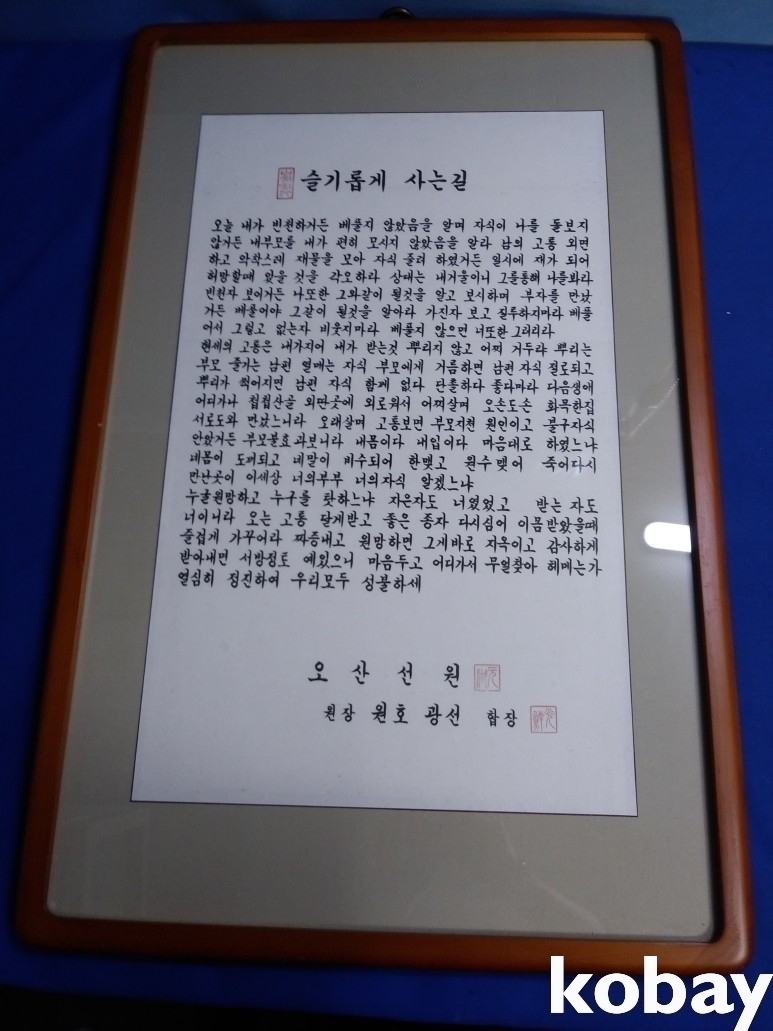 슬기롭게 사는길
오늘 내가 빈천하거든 베풀지 않았음을 알며 자식이 나를 돌보지
않거든 내부모를 내가 편히 모시지 않았음을 알라 남의 고통 외면
하고 악착스레 재물을 모아 자식 줄려 하였거든 일시에 재가 되어
허망할때 있을 것을 각오하라 상대는 내거울이니 그를통해 나를봐라
빈천자 보이거든 나또한 그와같이 될것을 알고 보시하며 부자를 만났
거든 베풀어야 그같이 될것을 알아라 가진자 보고 질투하지마라 베풀
어서 그렇고 없는자 비웃지마라 베풀지 않으면 너또한 그러리라
현세의 고통은 내가지어 내가 받는것 뿌리지 않고 어찌 거두랴 뿌리는
부모 줄기는 남편 열매는 자식 부모에게 거름하면 남편 자식 절로되고
뿌리가 썩어지면 남편 자식 함께 없다 단촐하다 좋다마라 다음생애
어디가나 첩첩산골 외딴곳에 외로워서 어찌살며 오손도손 화목한집
서로도와 만났느니라 오래살며 고통보면 부모지천 원인이고 불구자식
안았거든 부모불효과보니라 내몸이다 내입이다 마음대로 하였느냐
네몸이 도끼되고 네말이 비수되어 한맺고 원수 맺어 죽어다시
만난곳이 이세상 너의부부 너의자식 알겠느냐
누굴원망하고 누구를 탓하느냐 지은자도 너였었고 받는 자도
너이니라 오는 고통 달게받고 좋은 종자 다시심어 이몸받았을때
즐겁게 가꾸어라 짜증내고 원망하면 그게바로 지옥이고 감사하게
받아내면 서방정토 예있으니 마음두고 어디가서 무얼찾아 헤메는가
열심히 정진하여 우리모두 성불하세
오 산 선 원
원장 원호 광선 합장
kobay